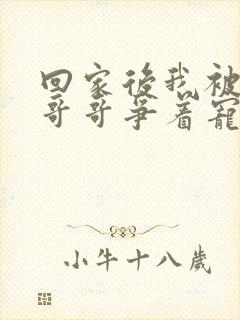 回家後我被
哥哥爭着寵
小牛十八歲